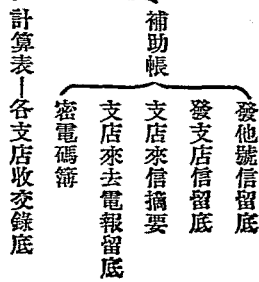 補助帳
發他號信留底
發支店信留底
支店來信摘要
支店來去電報留底
密電碼簿
計算表—各支店收交錄底